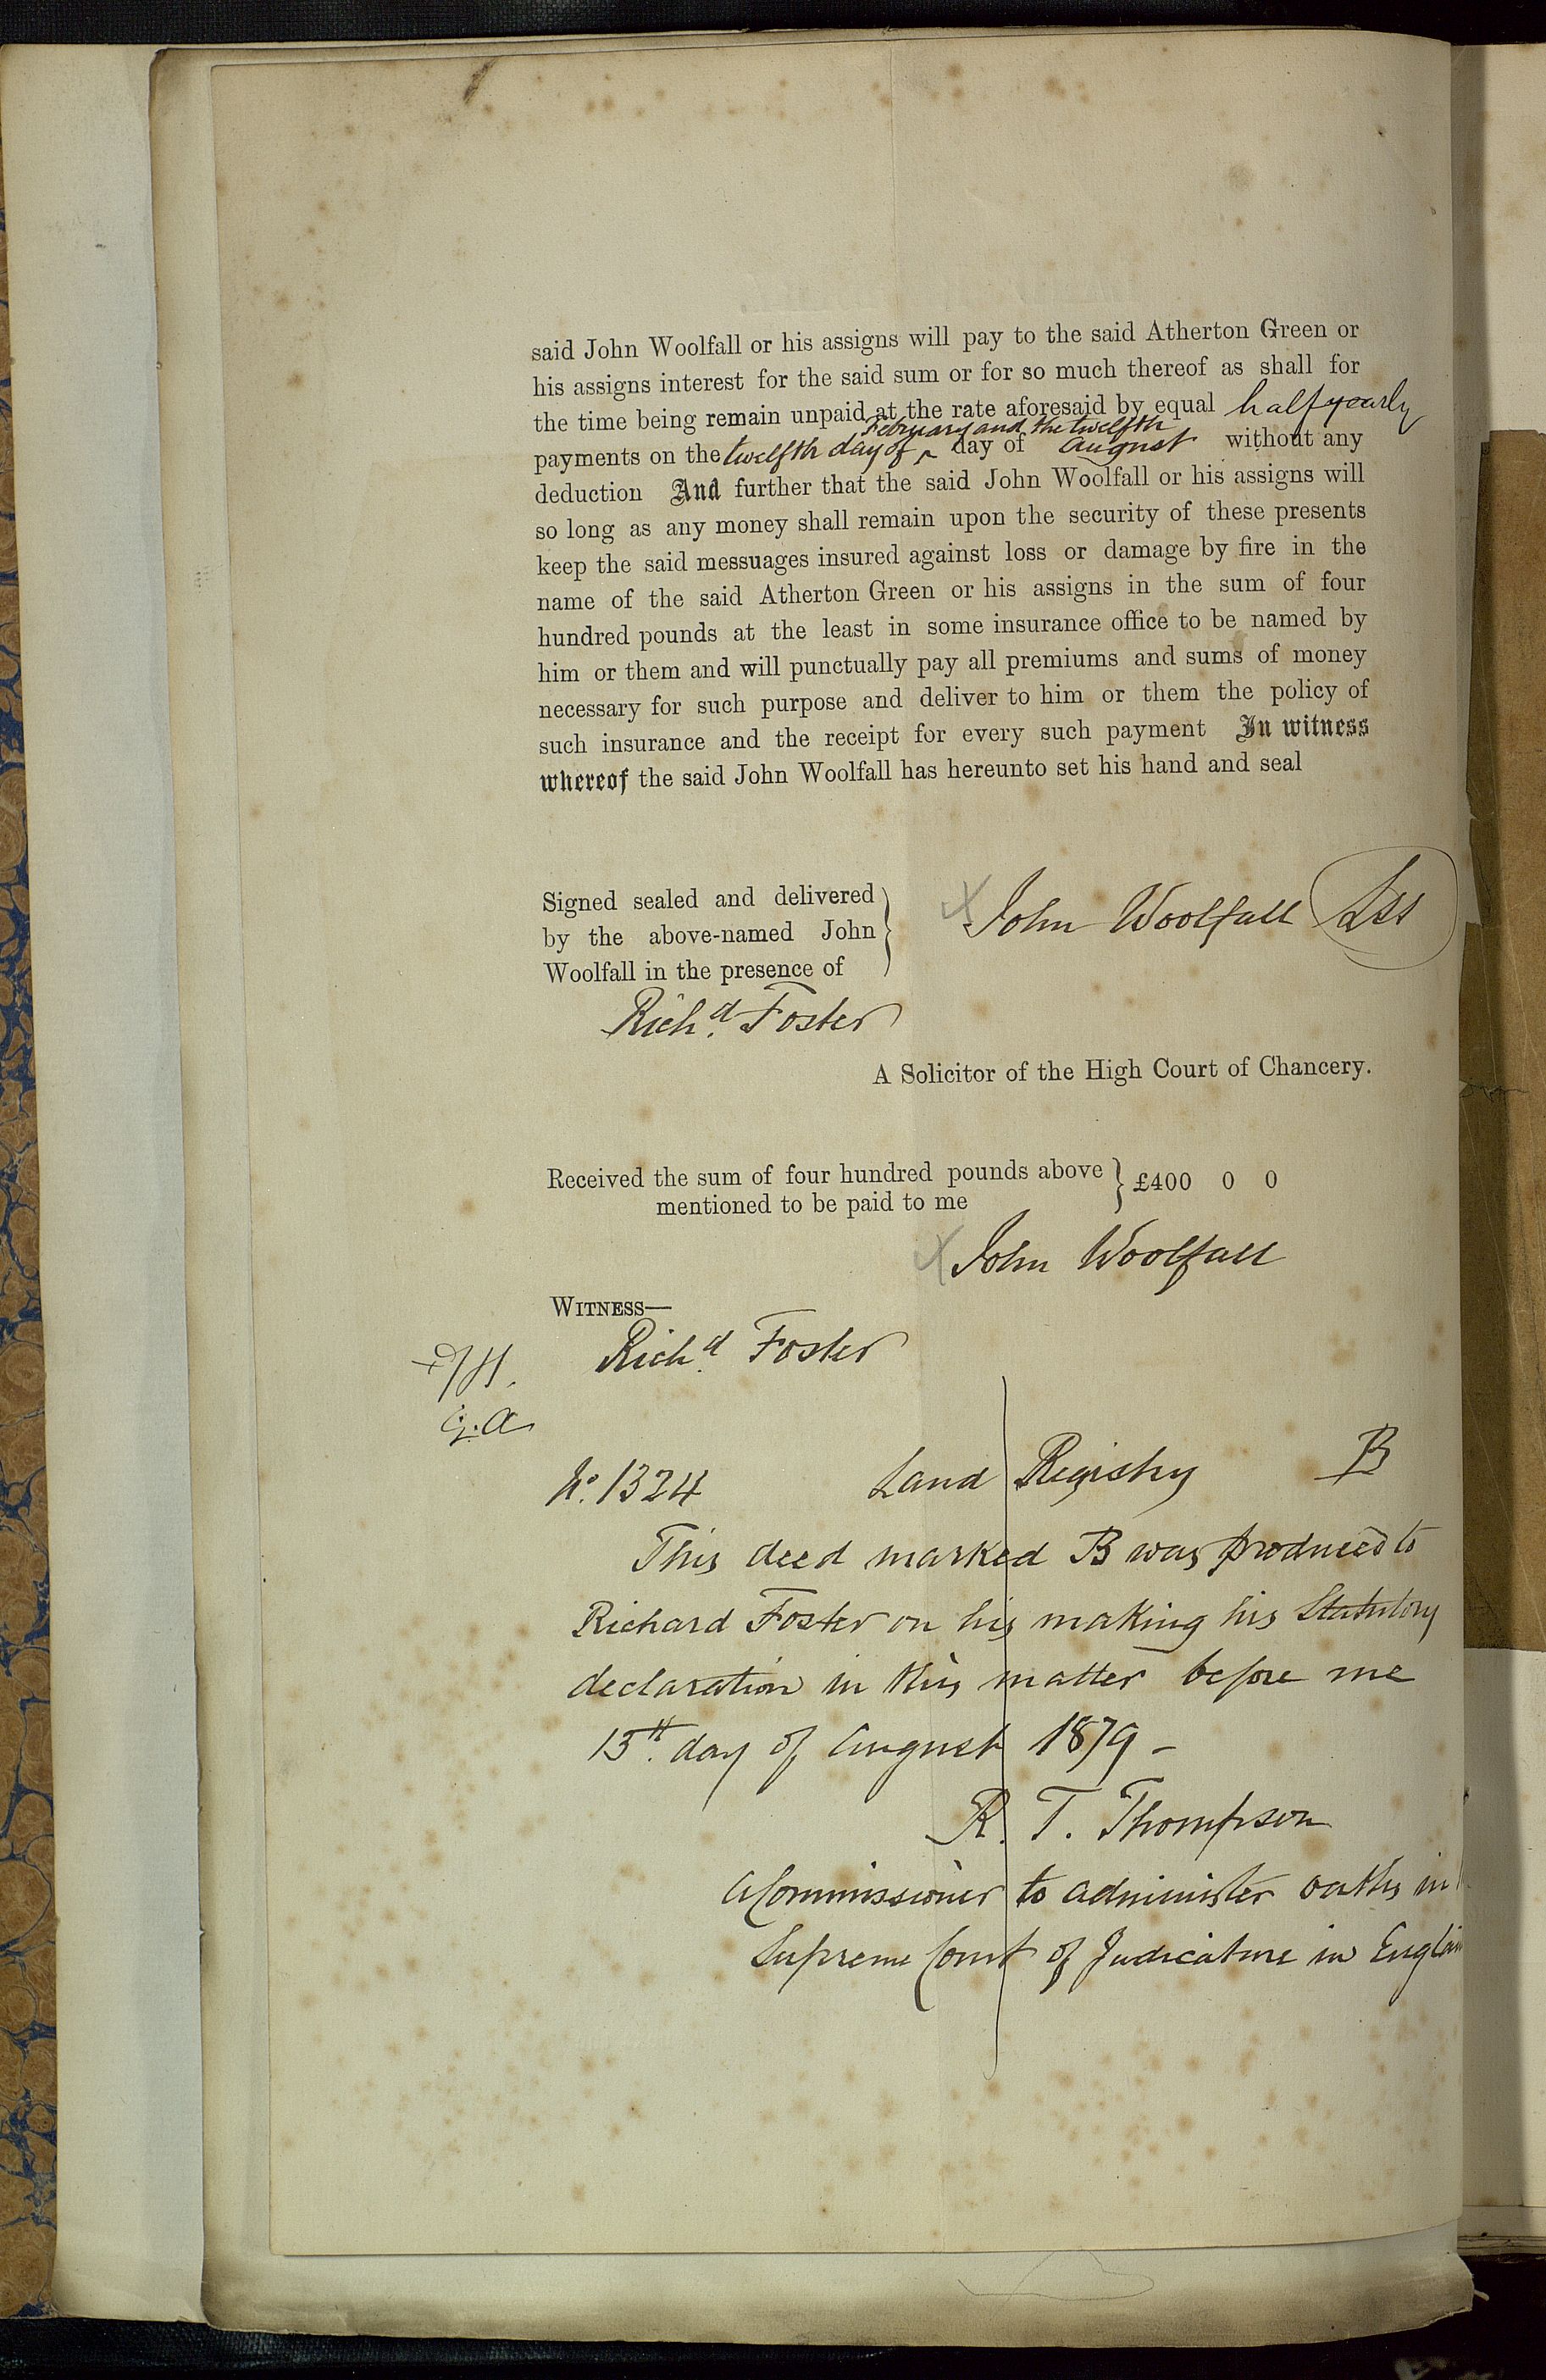 said John Woolfall or his assigns will pay to the said Atherton Green or
his assigns interest for the said sum or for so much thereof as shall for
the time being remain unpaid at the rate aforesaid by equal half yearly
February and the twelfth
payments on the twelfth day of ‸ day of August without any
deduction And further that the said John Woolfall or his assigns will
so long as any money shall remain upon the security of these presents
keep the said messuages insured against loss or damage by fire in the
name of the said Atherton Green or his assigns in the sum of four
hundred pounds at the least in some insurance office to be named by
him or them and will punctually pay all premiums and sums of money
necessary for such purpose and deliver to him or them the policy of
such insurance and the receipt for every such payment In witness
whereof the said John Woolfall has hereunto set his hand and seal
Signed sealed and delivered
by the above-named John
Woolfall in the presence of
John Woolfall
Richd. Foster
A Solicitor of the High Court of Chancery.
Received the sum of four hundred pounds above
mentioned to be paid to me
£400 0 0
John Woolfall
WITNESS—
Richd. Foster
No. 1324 Land Registry B
This deed marked B was produced to
Richard Foster on his making his Statutory
declaration in this matter before me
13th. day of August 1879 -
R. T. Thompson
A Commissioner to administer oaths in
Supreme Court of Judicature in Englan